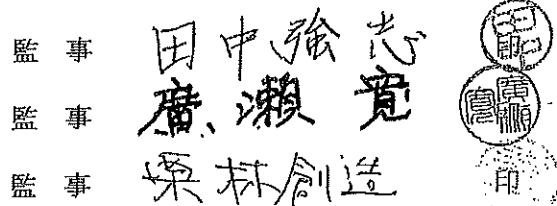 監事 田中強志
監事 廣瀬寛
監事 栗林創造 印